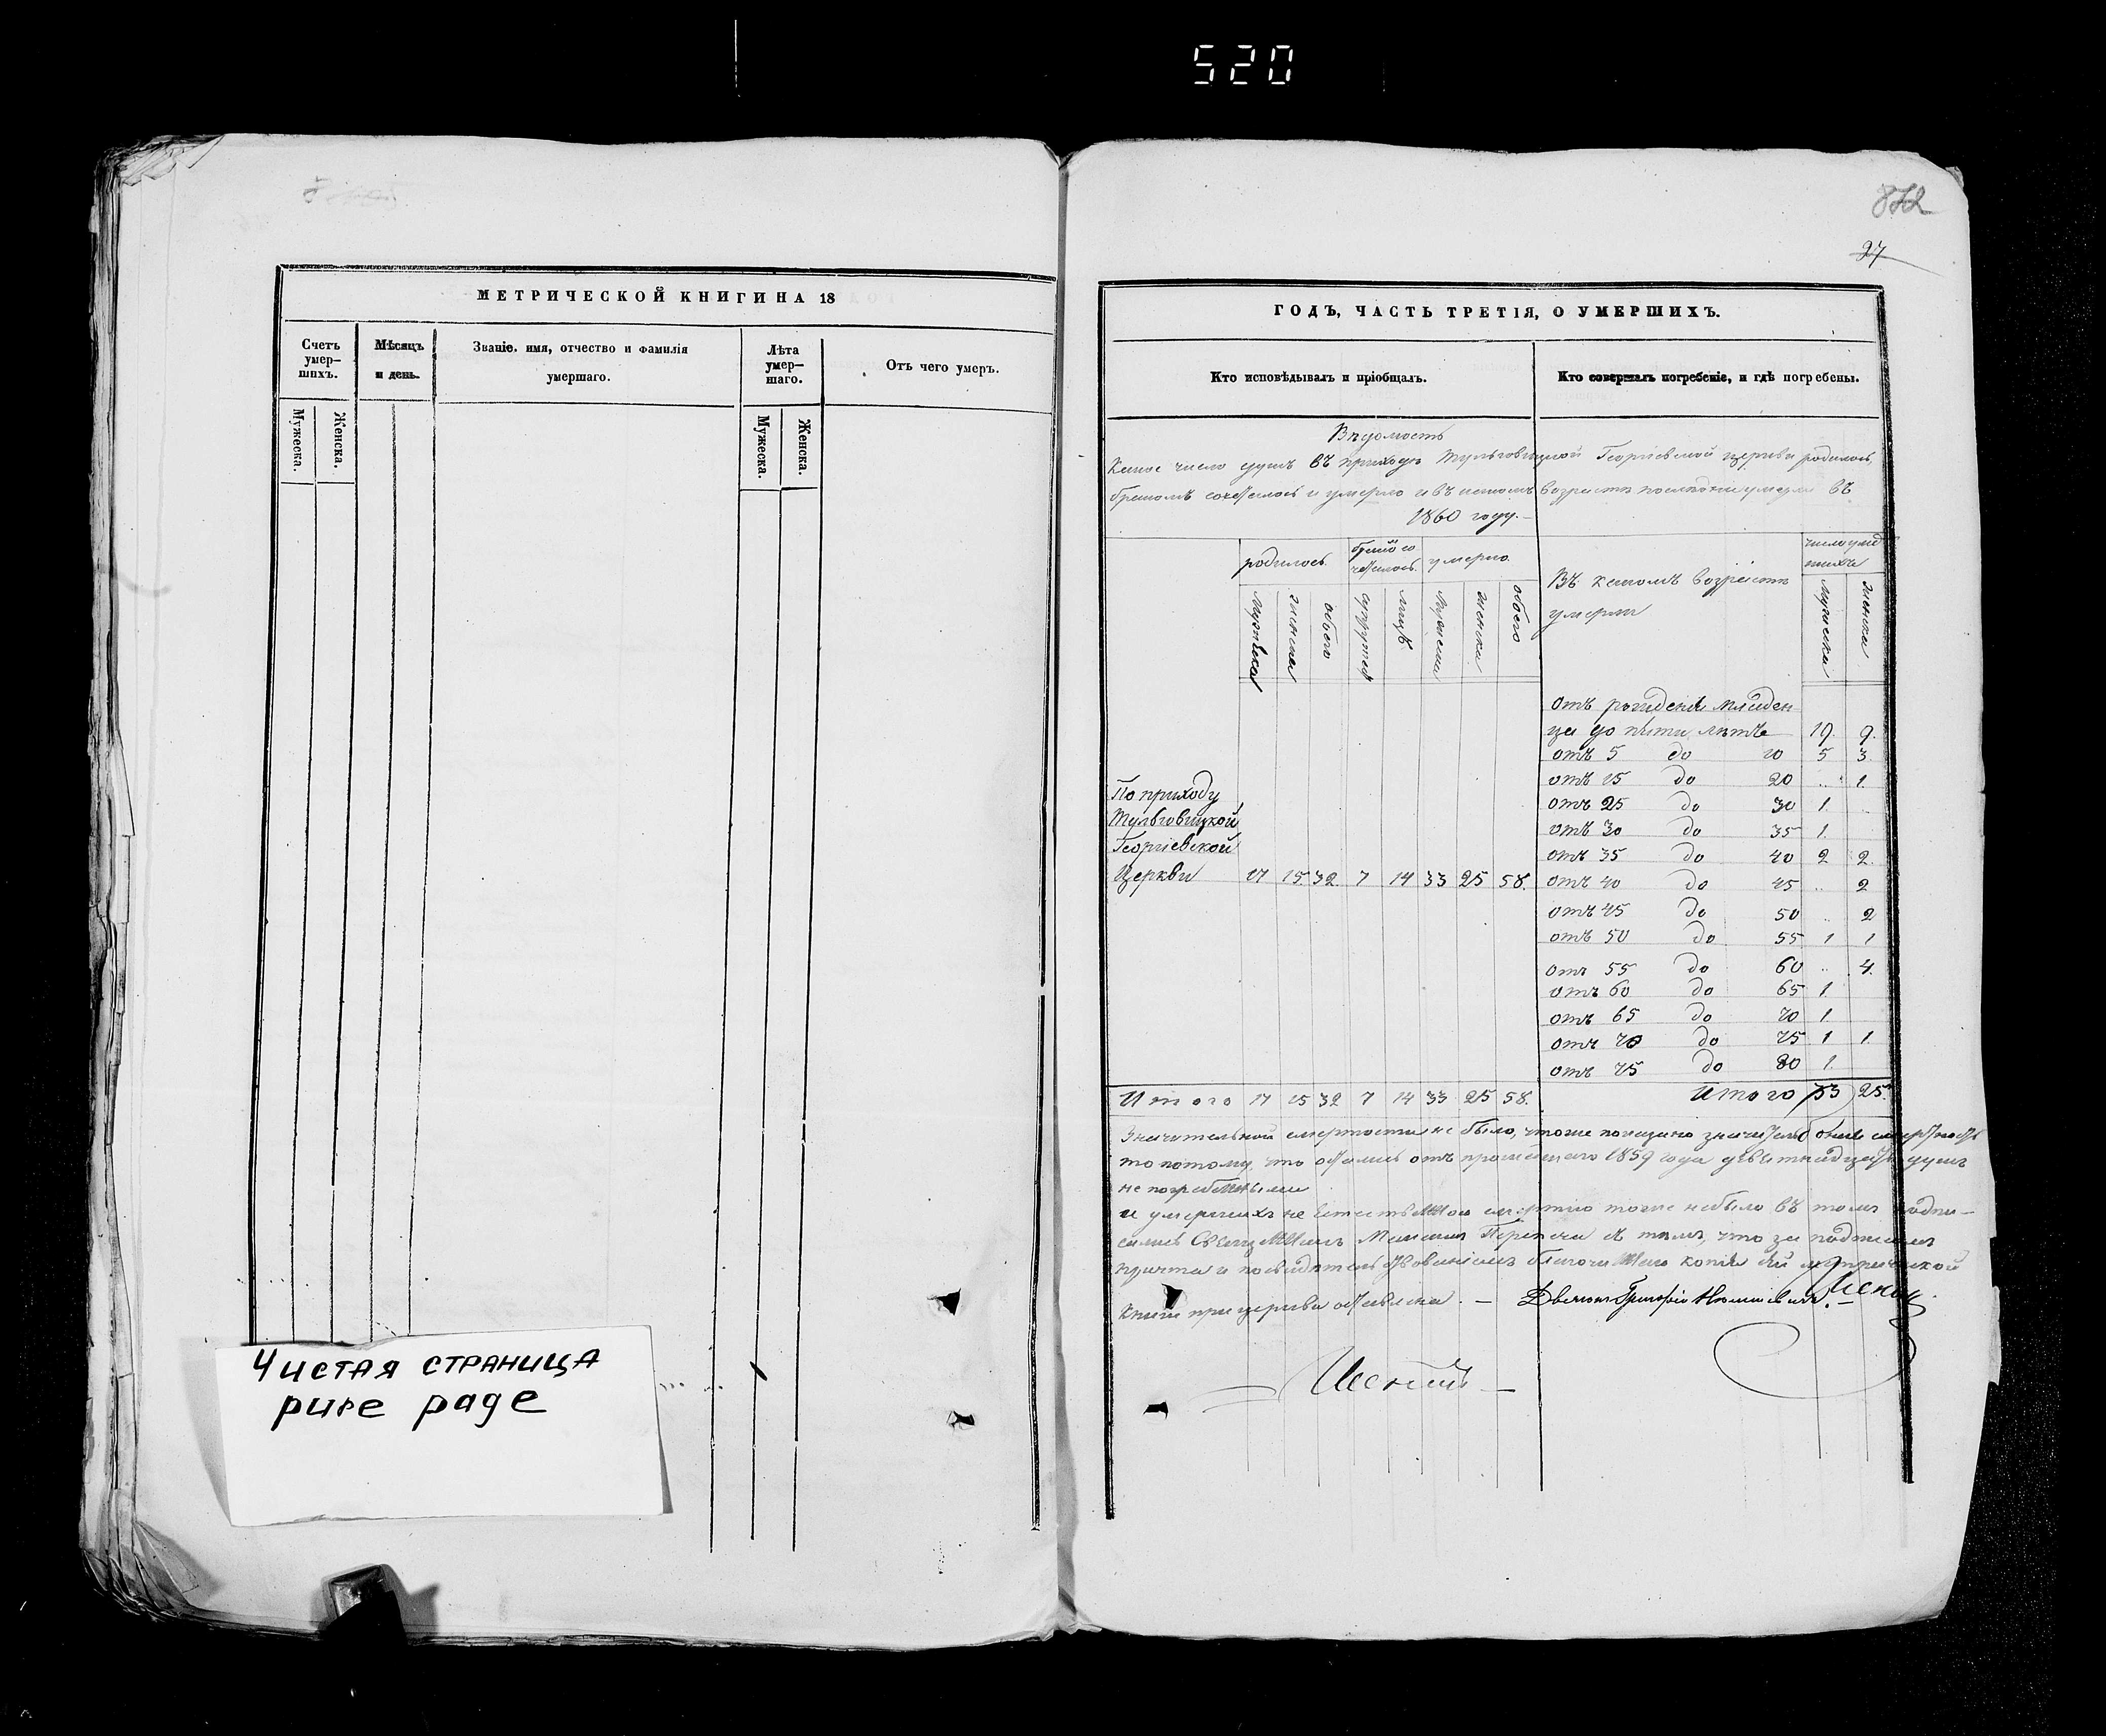 520
872
27
МЕТРИЧЕСКОЙ КНИГИ НА 18
Счетъ умер-шихъ.
Мѣсяцъ и день.
Званіе, имя, отчество и фамилія умершаго.
Лѣта умер-шаго.
Отъ чего умеръ.
Мужеска.
Женска.
Мужеска.
Женска.
Чистая страница
pure page
ГОДЪ, ЧАСТЬ ТРЕТІЯ, О УМЕРШИХЪ.
Кто исповѣдывалъ и пріобщалъ.
Кто совершалъ погребеніе, и гдѣ погребены.
Вѣдомость
Какое число душъ въ приходѣ Тульговицкой Георгіевской церкви родилось,
бракомъ сочеталось и умерло и въ какомъ возрастѣ въ
1860 году.
родилось
бракомъ сочеталось
умерло
Въ какомъ возрастѣ
умерли
число умершихъ
мужеска
женска
обоего
супружес
лицъ
мужеска
женска
обоего
мужеска
женска
отъ рожденія младен-
ца до пяти лѣтъ 19. 9.
отъ 5 до 10 5 3
отъ 15 до 20 .. 1.
отъ 25 до 30 1.
отъ 30 до 35 1.
отъ 35 до 40 2 2.
По приходу
Тульговицкой
Георгіевской
Церкви 17 15 32. 7 14 33 25 58.
отъ 40 до 45 .. 2
отъ 45 до 50 .. 2
отъ 50 до 55 1 1
отъ 55 до 60 .. 4.
отъ 60 до 65 1.
отъ 65 до 70 1.
отъ 70 до 75 1 1.
отъ 75 до 80 1.
Итого 17 15 32 7 14 33 25 58.
Итого 33 25.
Значительной смертости не было, тоже показано
то потому, что остались отъ прошлаго 1859 года девятнадцать душъ
не погребенными
и умершихъ не естественною смертію тоже небыло въ томъ подпи-
сался Священникъ съ тѣмъ, что за подписомъ
причта и копія сей метрической
книги при церкви оставлена. —